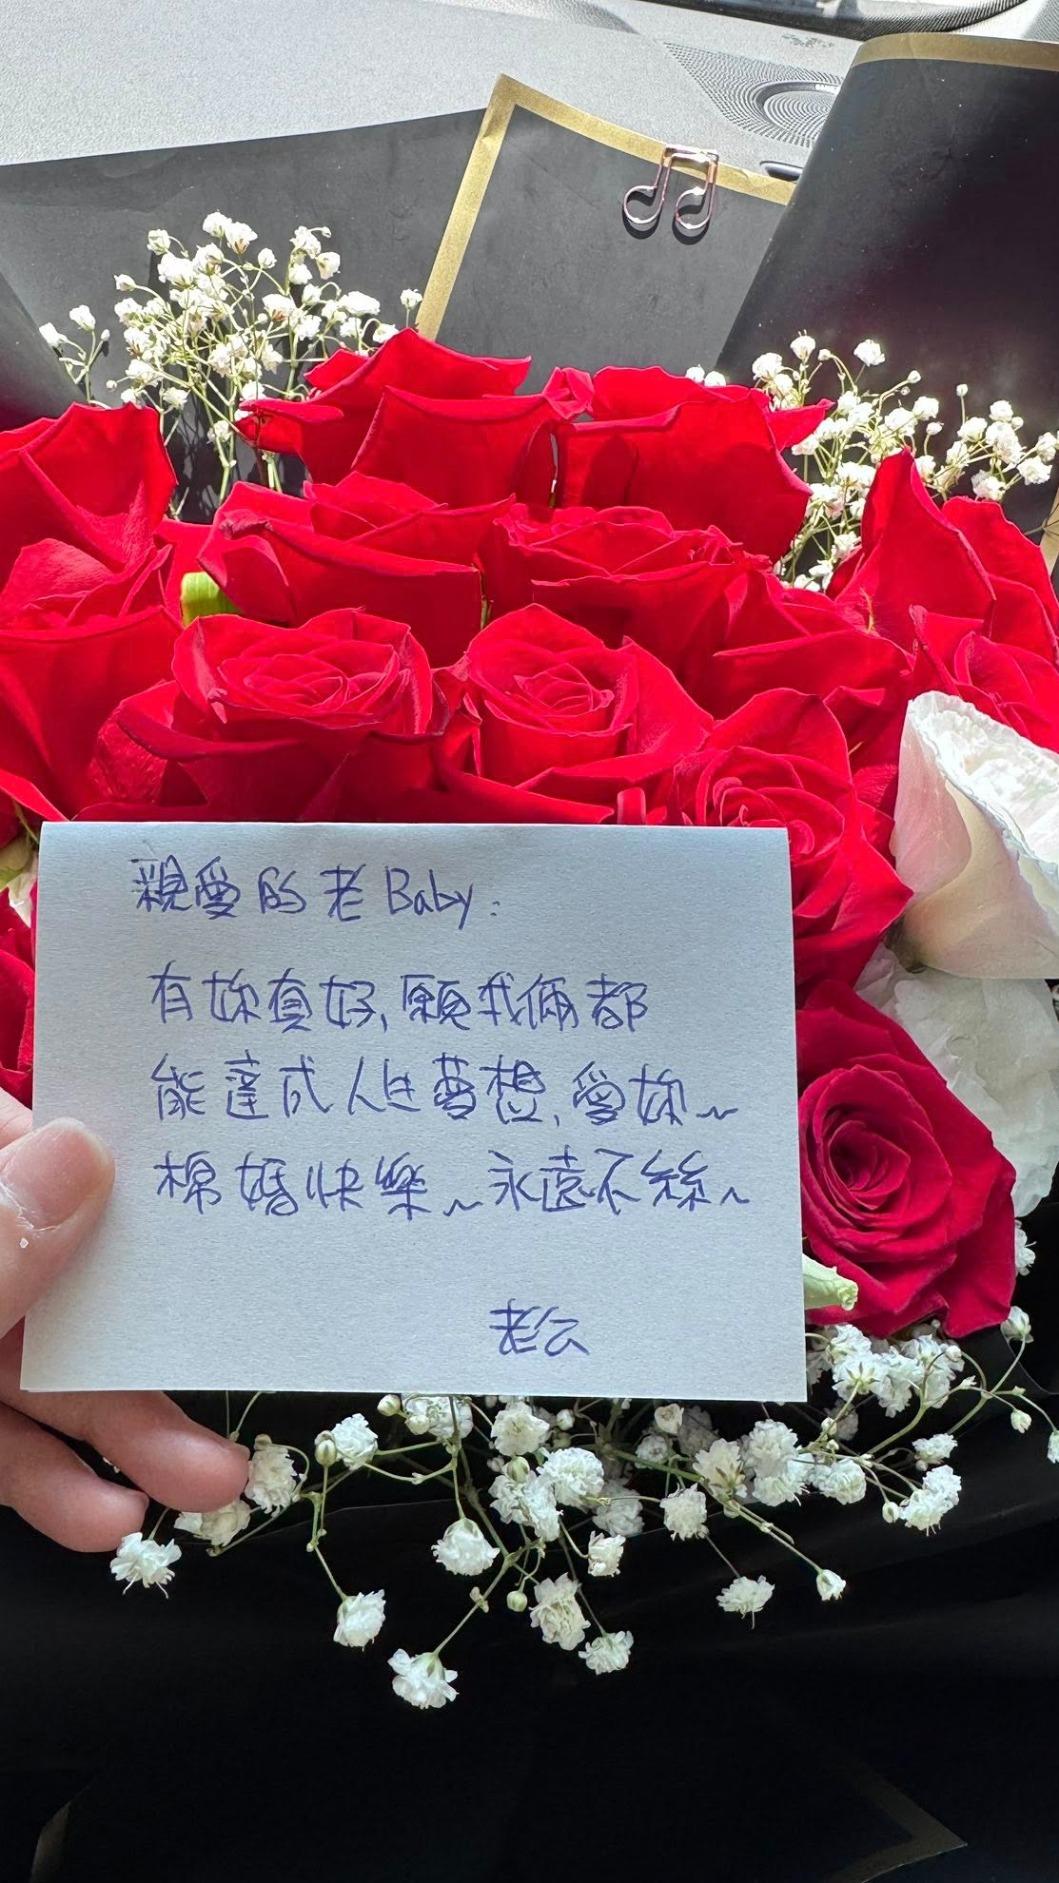 親愛的老Baby:
有妳真好,願我倆都
能達成人生夢想,愛妳~
棉婚快樂~永遠不絲~
老公